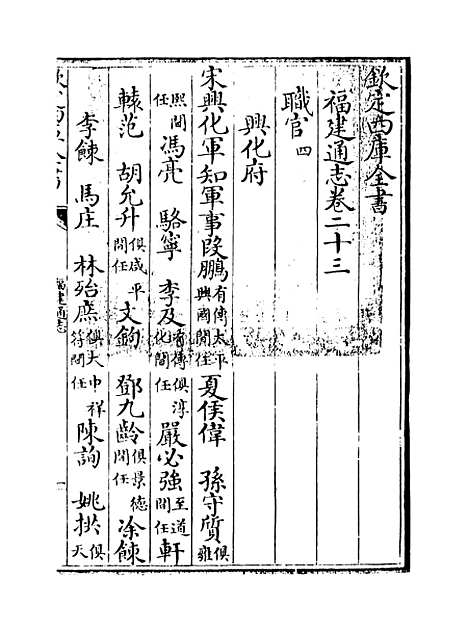 欽定四庫全書
福建通志卷二十三
職官四
興化府
宋興化軍知軍事段鵬有傳太平興國間任夏侯偉 孫守質俱雍
熙間任馮亮 駱寧 李及有傳俱淳化間任嚴必強至道間任軒
轅范 胡允升俱咸平間任文鈞 鄧九齡俱景德間任凃餗
李餗 馬庄 林殆庶俱大中祥符間任陳詢 姚拱俱天
福建通志
一